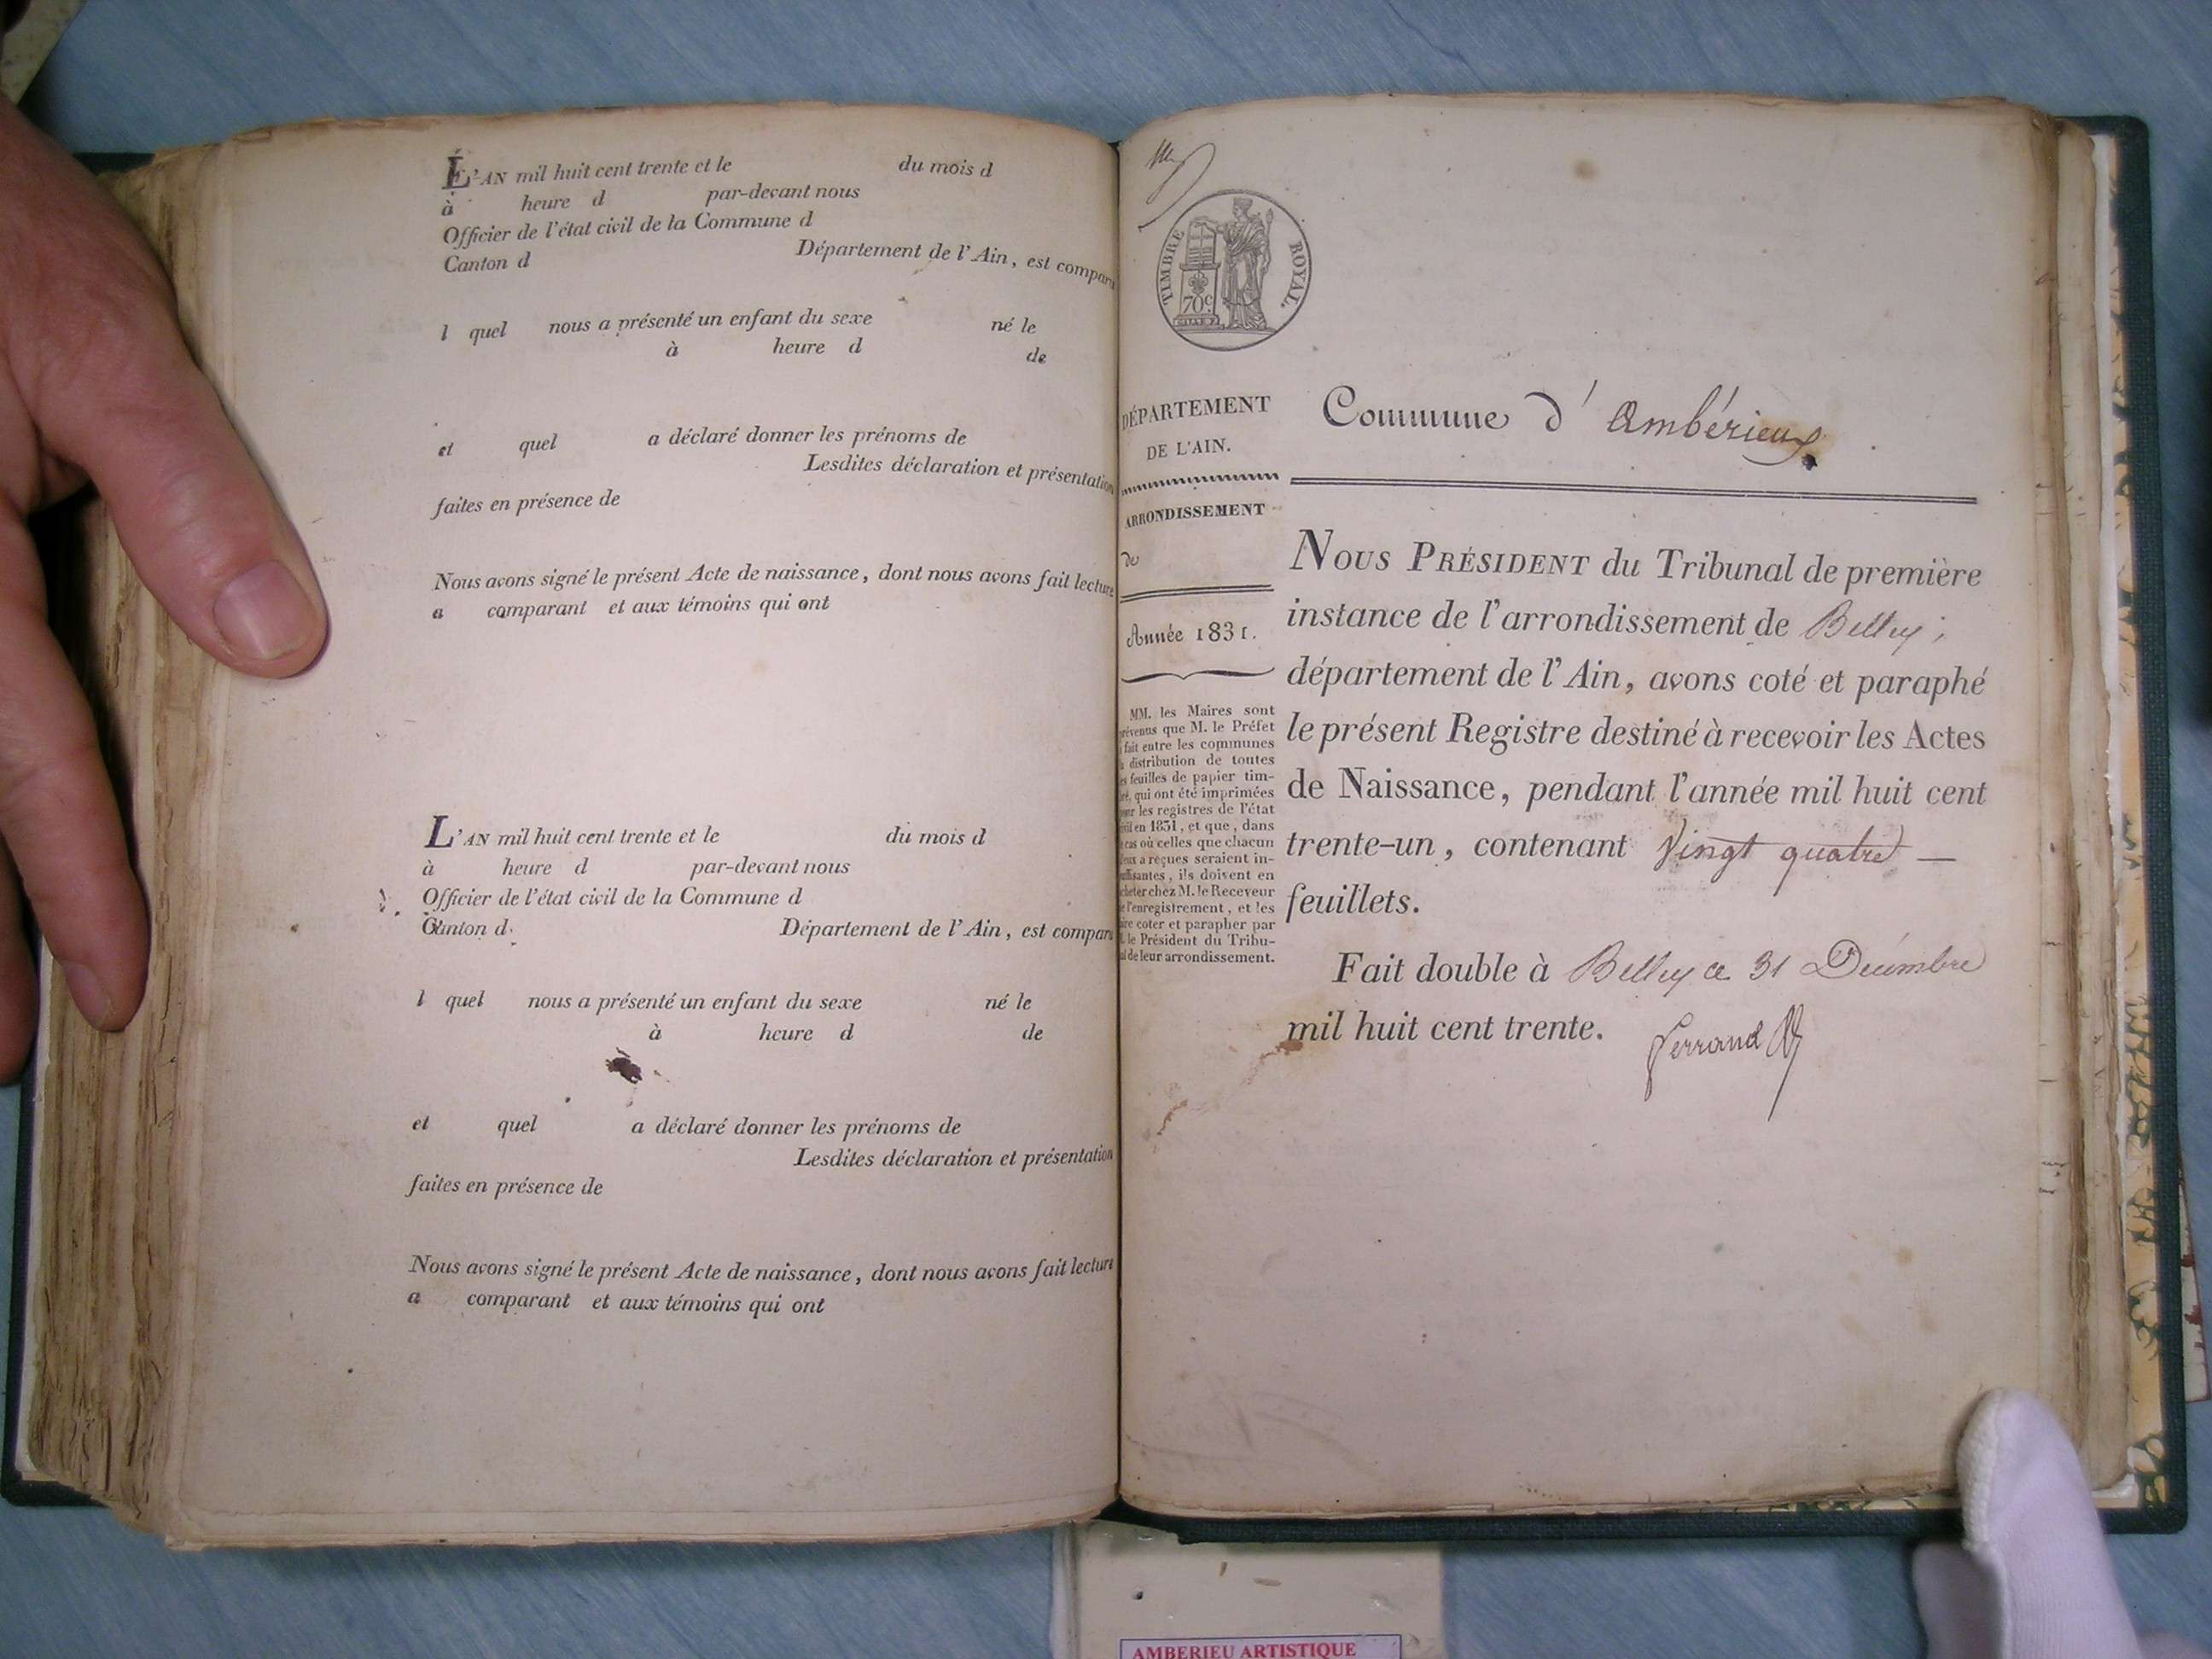 L'AN mil huit cent trente et le du mois d
à heure d par-devant nous
Officier de l'état civil de la Commune d
Canton d Département de l'Ain, est comparu
l quel nous a présenté un enfant du sexe né le
à heure d de
et quel a déclaré donner les prénoms de
Lesdites déclaration et présentation
faites en présence de
Nous avons signé le présent Acte de naissance, dont nous avons fait lecture
a comparant et aux témoins qui ont
L'AN mil huit cent trente et le du mois d
à heure d par-devant nous
Officier de l'état civil de la Commune d
Canton d Département de l'Ain, est comparu
l quel nous a présenté un enfant du sexe né le
à heure d de
et quel a déclaré donner les prénoms de
Lesdites déclaration et présentation
faites en présence de
Nous avons signé le présent Acte de naissance, dont nous avons fait lecture
a comparant et aux témoins qui ont
TIMBRE ROYAL.
70c
DÉPARTEMENT
DE L'AIN.
ARRONDISSEMENT
de
Année 1831.
MM. les Maires sont
prévenus que M. le Préfet
a fait entre les communes
la distribution de toutes
les feuilles de papier tim-
bré, qui ont été imprimées
pour les registres de l'état
civil en 1831, et que, dans
le cas où celles que chacun
d'eux a reçues seraient in-
suffisantes, ils doivent en
acheter chez M. le Receveur
de l'enregistrement, et les
faire coter et parapher par
M. le Président du Tribu-
nal de leur arrondissement.
Commune d' Ambérieux
NOUS PRÉSIDENT du Tribunal de première
instance de l'arrondissement de Belley,
département de l'Ain, avons coté et paraphé
le présent Registre destiné à recevoir les Actes
de Naissance, pendant l'année mil huit cent
trente-un, contenant Vingt quatre —
feuillets.
Fait double à Belley ce 31 Décembre
mil huit cent trente. Perrand
AMBERIEU ARTISTIQUE